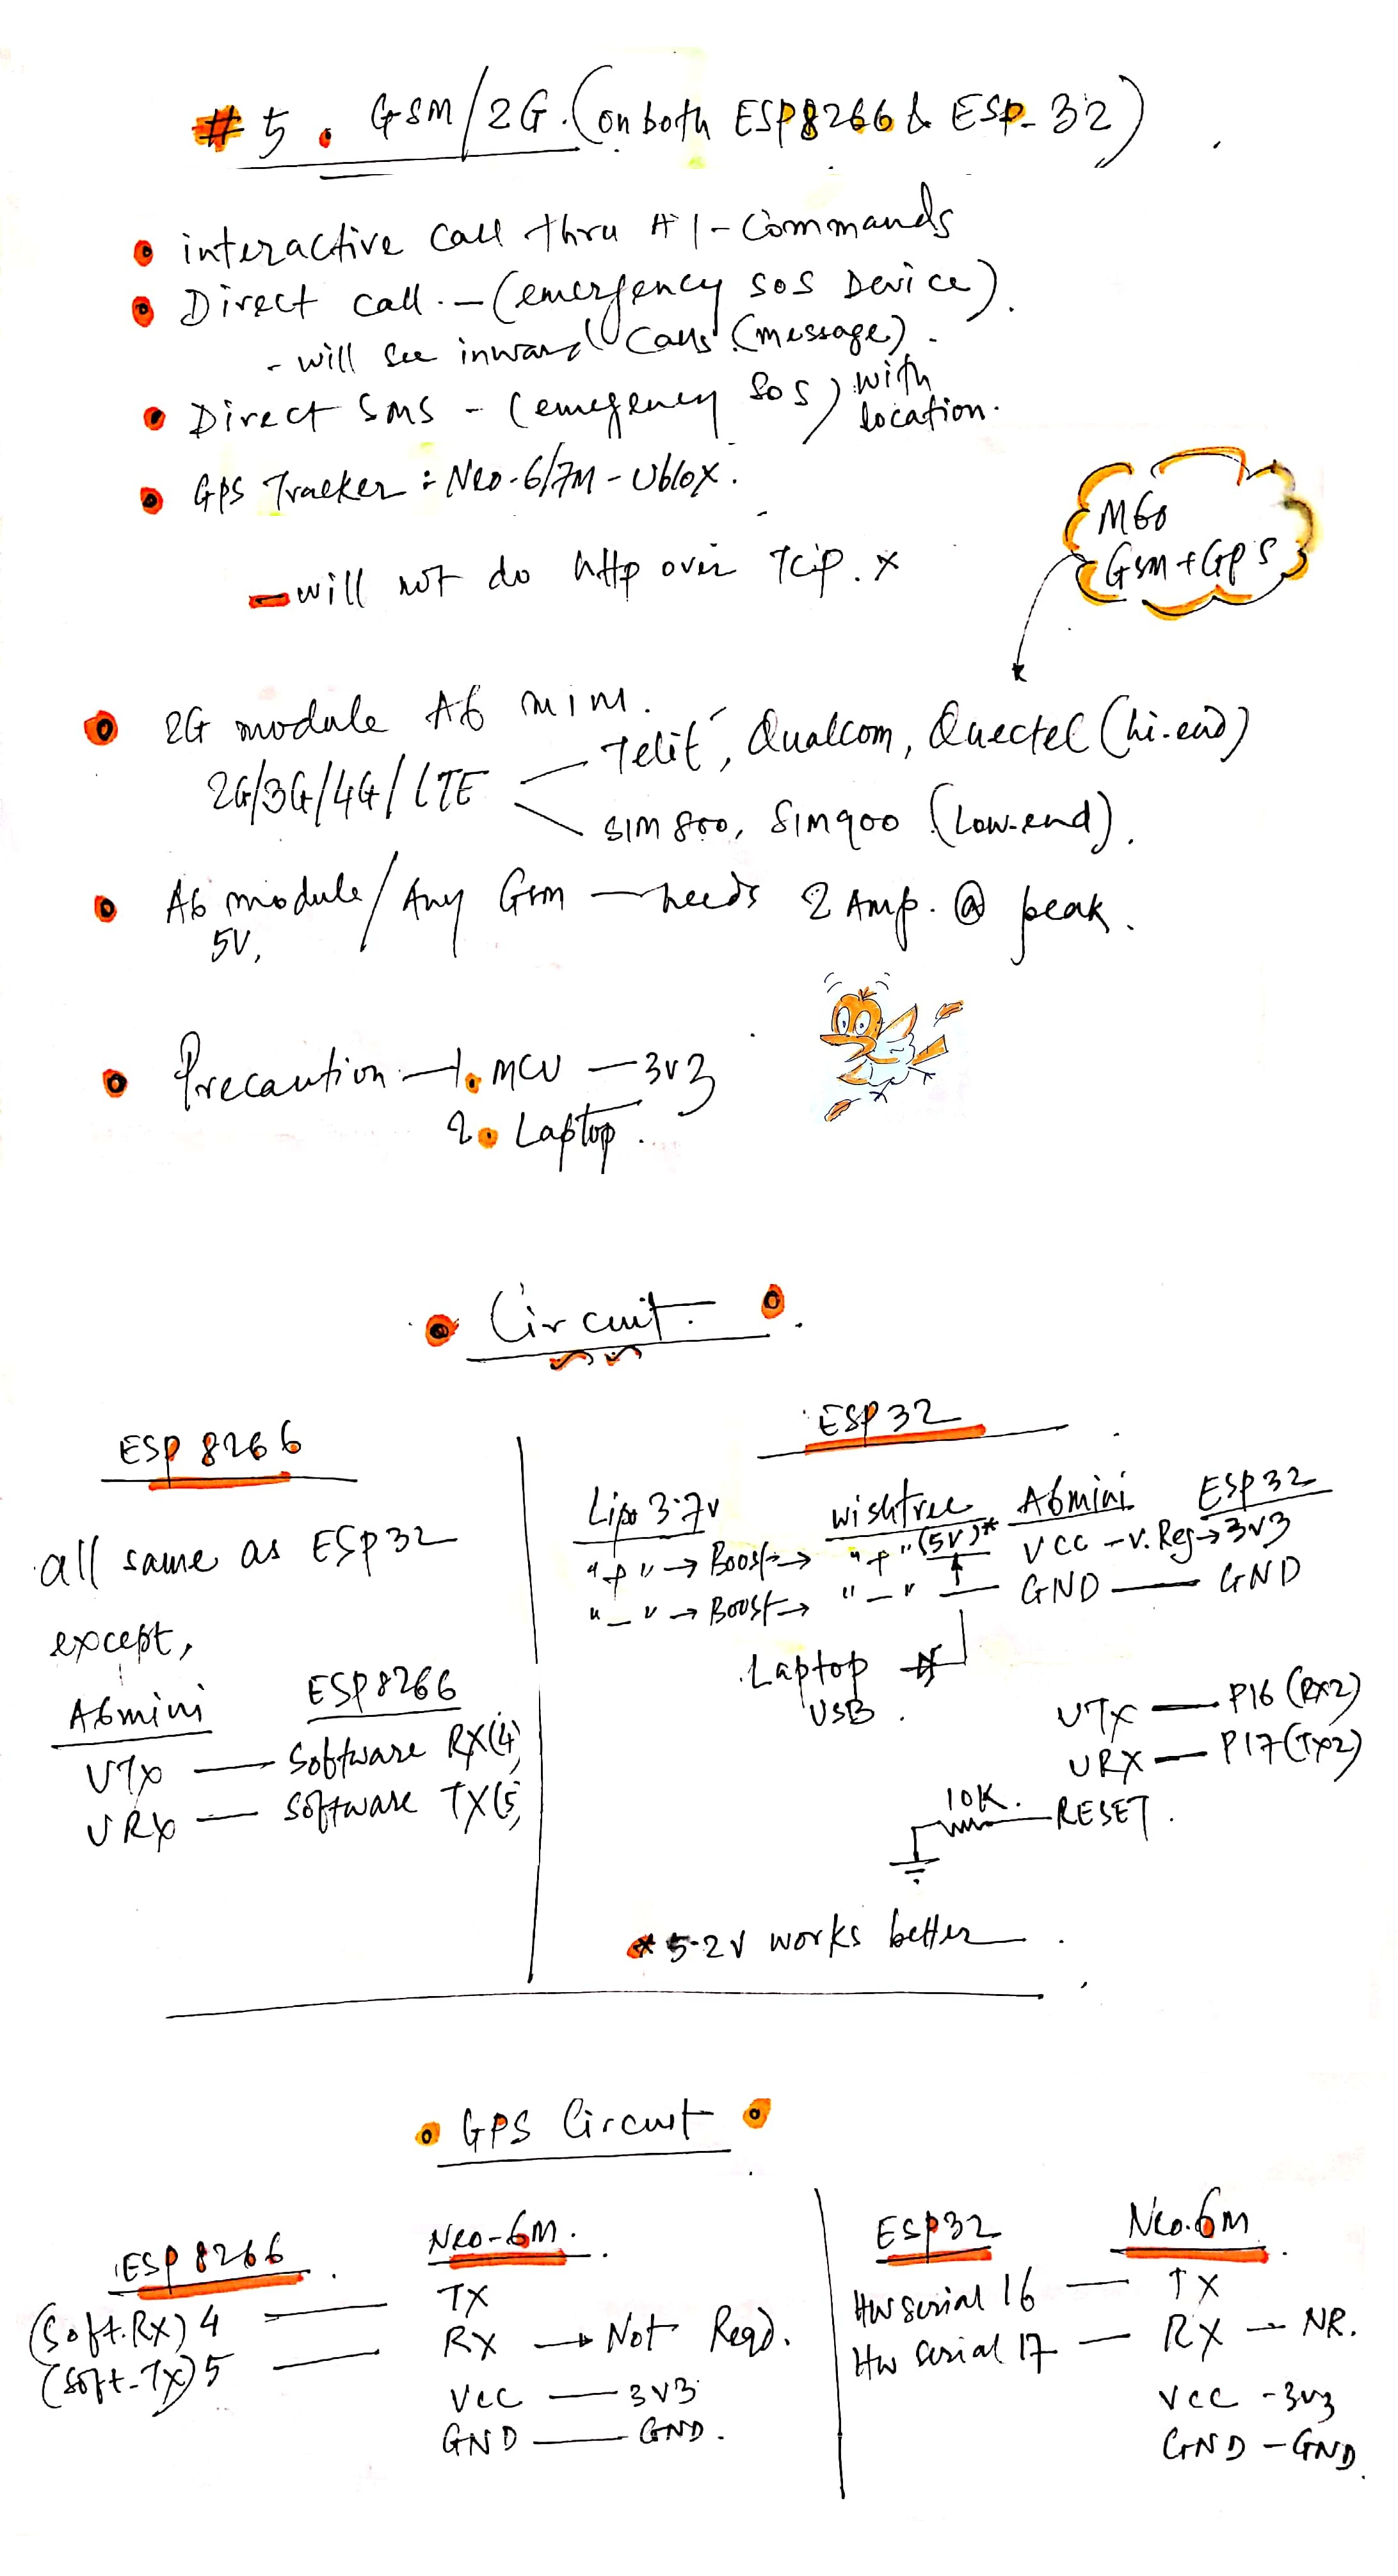 #5. GSM/2G. (on both ESP8266 & ESP-32)
interactive call thru AT-Commands
Direct call. - (emergency SOS Device).
- will see inward calls (message).
Direct SMS - (emergency SOS) with location.
GPS Tracker : Neo-6/7M - Ublox.
- will not do http over Tcip. x
M60
Gsm + GPS
2G module A6 mini.
2G/3G/4G/LTE
Telit, Qualcom, Quectel (hi-end)
SIM 800, Sim900 (Low-end).
A6 module / Any Gsm - needs 2 Amp. @ peak.
5V,
Precaution - 1. MCU - 3v3
2. Laptop.
Circuit.
ESP 8266
all same as ESP32
except,
A6mini ESP8266
UTX - Software RX(4)
URX - Software TX(5)
ESP32
Lipo 3.7v wishtree A6mini ESP32
"+" → Boost → "+" (5V)* VCC - v. Reg → 3v3
"-" → Boost → "-" - GND - GND
Laptop
USB.
UTX - P16 (RX2)
URX - P17 (TX2)
10K. RESET.
* 5.2V works better
GPS Circuit
ESP 8266 Neo-6M.
(Soft.RX) 4 - TX
(Soft-TX) 5 - RX → Not Reqd.
VCC - 3V3
GND - GND.
ESP32 Neo.6m
HW serial 16 - TX
HW serial 17 - RX - NR.
VCC - 3v3
GND - GND.